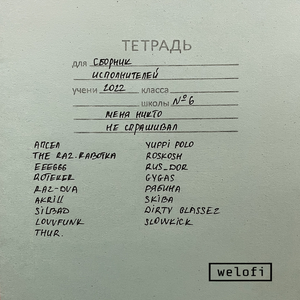 ТЕТРАДЬ
для СБОРНИК
ИСПОЛНИТЕЛЕЙ
учени 2022 класса
школы №6
МЕНЯ НИКТО
НЕ СПРАШИВАЛ
АПСЕЛ
THE RAZ.RABOTKA
EEE666
ROTEKER
RAZ-DVA
AKRILL
SILBAD
LOUVFUNK
THUR.
YUPPI POLO
ROSKOSH
RUS_DOR
GYGAS
РАБИЦА
SKIBA
DIRTY GLASSEZ
SLOWKICK
welofi